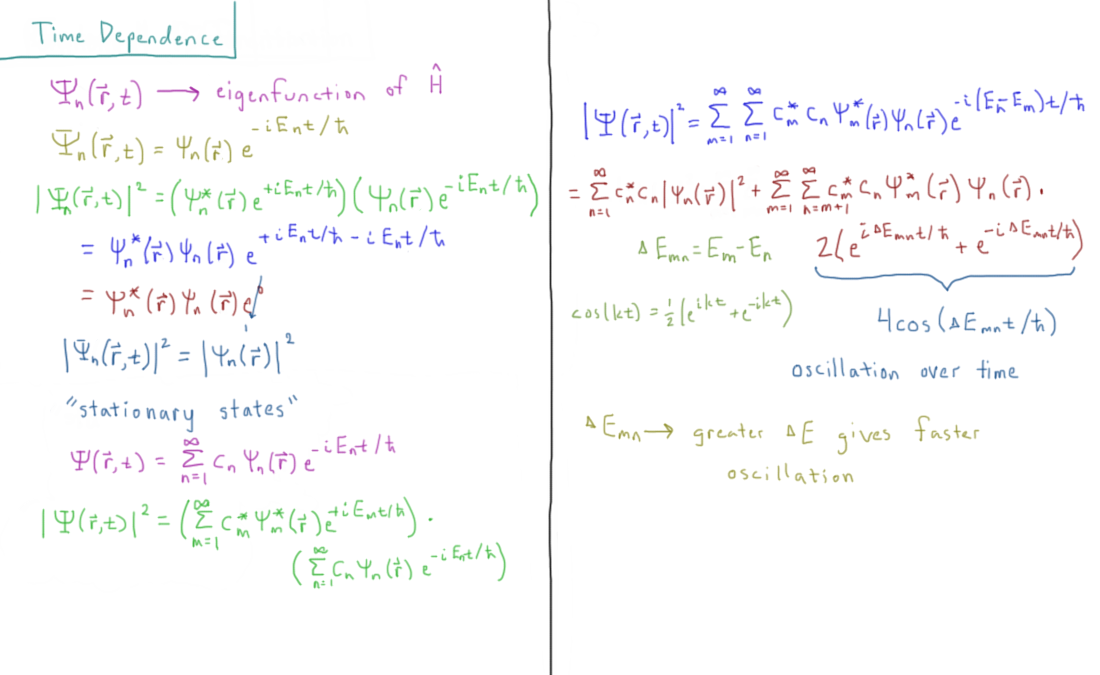 Time Dependence
Ψₙ(r⃗,t) → eigenfunction of Ĥ
Ψₙ(r⃗,t) = ψₙ(r⃗) e^{-iEₙt/ħ}
|Ψₙ(r⃗,t)|² = (ψₙ*(r⃗) e^{+iEₙt/ħ})(ψₙ(r⃗) e^{-iEₙt/ħ})
= ψₙ*(r⃗) ψₙ(r⃗) e^{+iEₙt/ħ - iEₙt/ħ}
= ψₙ*(r⃗) ψₙ(r⃗) e⁰
1
|Ψₙ(r⃗,t)|² = |ψₙ(r⃗)|²
"stationary states"
Ψ(r⃗,t) = ∑_{n=1}^{∞} cₙ ψₙ(r⃗) e^{-iEₙt/ħ}
|Ψ(r⃗,t)|² = (∑_{m=1}^{∞} cₘ* ψₘ*(r⃗) e^{+iEₘt/ħ}) ·
(∑_{n=1}^{∞} cₙ ψₙ(r⃗) e^{-iEₙt/ħ})
|Ψ(r⃗,t)|² = ∑_{m=1}^{∞} ∑_{n=1}^{∞} cₘ* cₙ ψₘ*(r⃗) ψₙ(r⃗) e^{-i(Eₙ-Eₘ)t/ħ}
= ∑_{n=1}^{∞} cₙ* cₙ |ψₙ(r⃗)|² + ∑_{m=1}^{∞} ∑_{n=m+1}^{∞} cₘ* cₙ ψₘ*(r⃗) ψₙ(r⃗) ·
ΔEₘₙ = Eₘ - Eₙ 2(e^{iΔEₘₙt/ħ} + e^{-iΔEₘₙt/ħ})
cos(kt) = ½(e^{ikt} + e^{-ikt}) 4cos(ΔEₘₙt/ħ)
oscillation over time
ΔEₘₙ → greater ΔE gives faster
oscillation